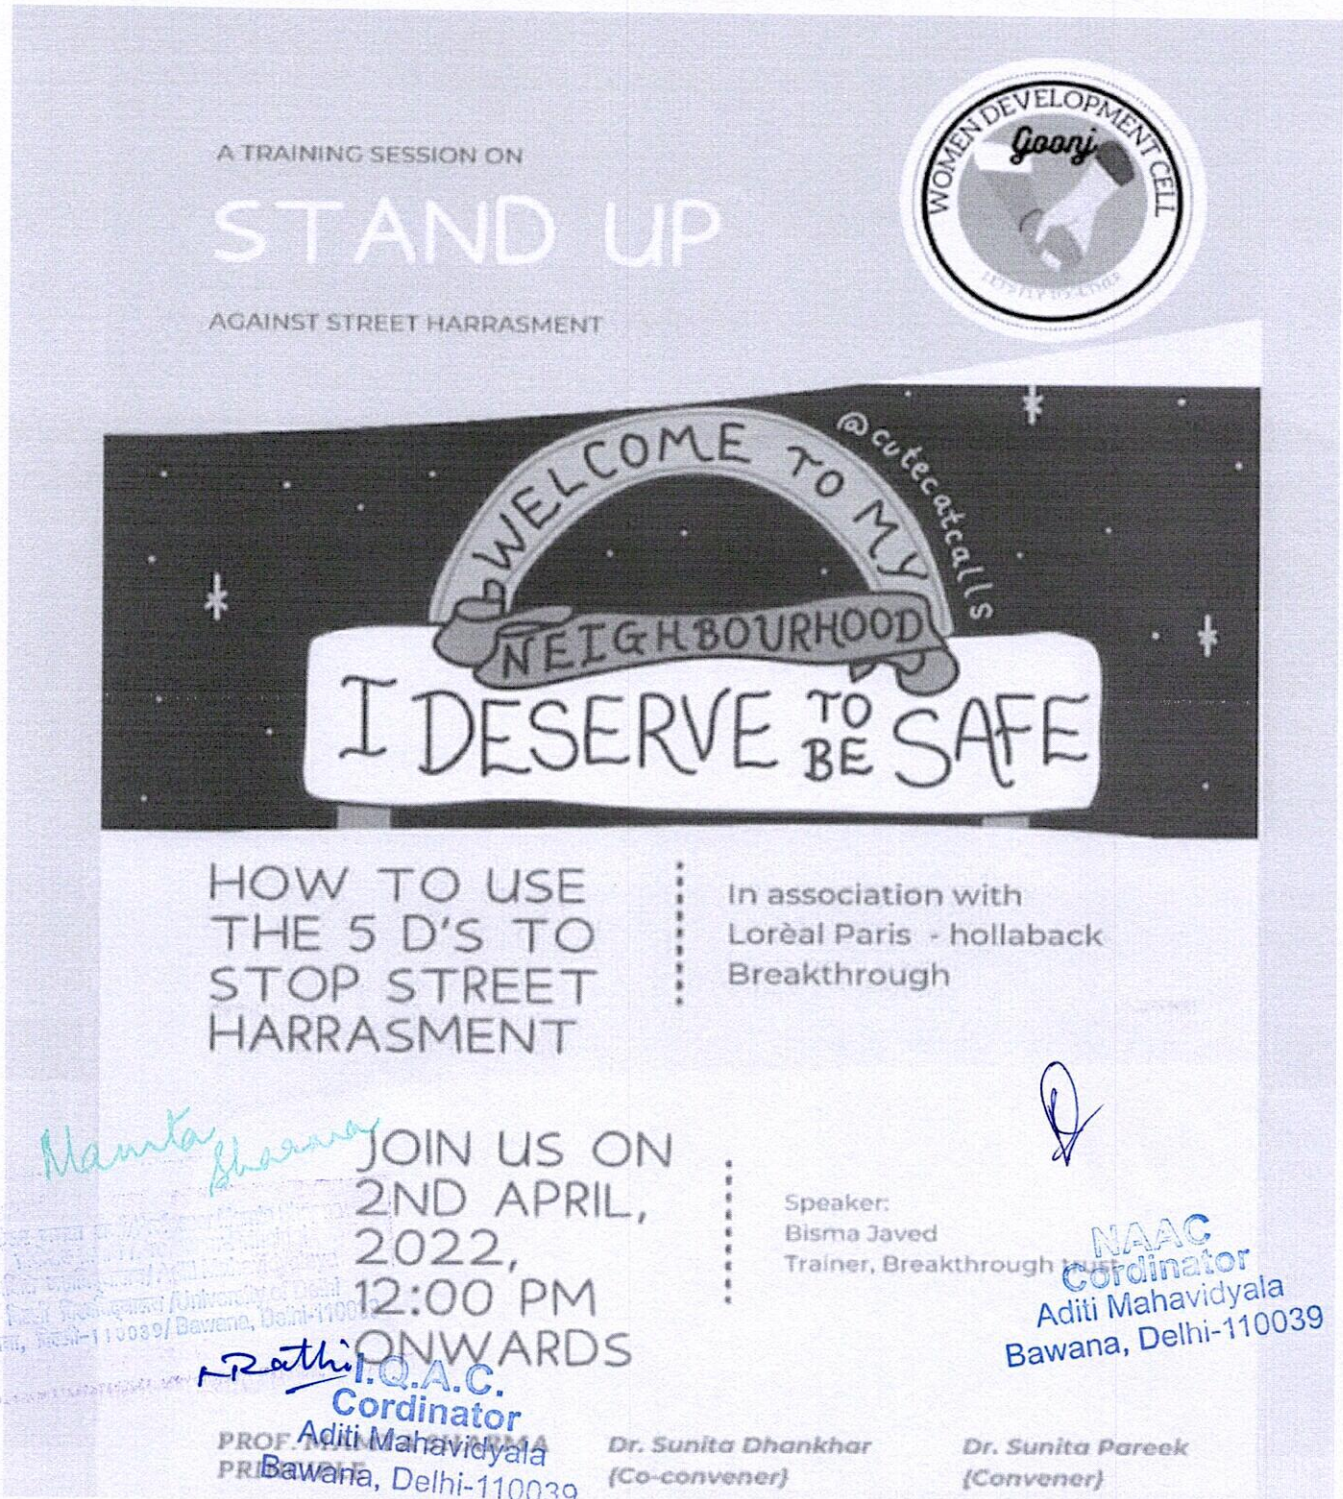 A TRAINING SESSION ON
STAND UP
AGAINST STREET HARRASMENT
WOMEN DEVELOPMENT CELL
Goonj
@cutecatcalls
WELCOME TO MY
NEIGHBOURHOOD
I DESERVE TO BE SAFE
HOW TO USE
THE 5 D'S TO
STOP STREET
HARRASMENT
In association with
Lorèal Paris - hollaback
Breakthrough
Mamta
Sharma
JOIN US ON
2ND APRIL,
2022,
12:00 PM
ONWARDS
Speaker:
Bisma Javed
Trainer, Breakthrough trust
NAAC
Cordinator
Aditi Mahavidyala
Bawana, Delhi-110039
/University of Delhi
-110039/ Bawana, Delhi-1100
Rathi
I.Q.A.C.
Cordinator
Aditi Mahavidyala
Bawana, Delhi-110039
PROF. MAMTA SHARMA
Dr. Sunita Dhankhar
(Co-convener)
Dr. Sunita Pareek
(Convener)